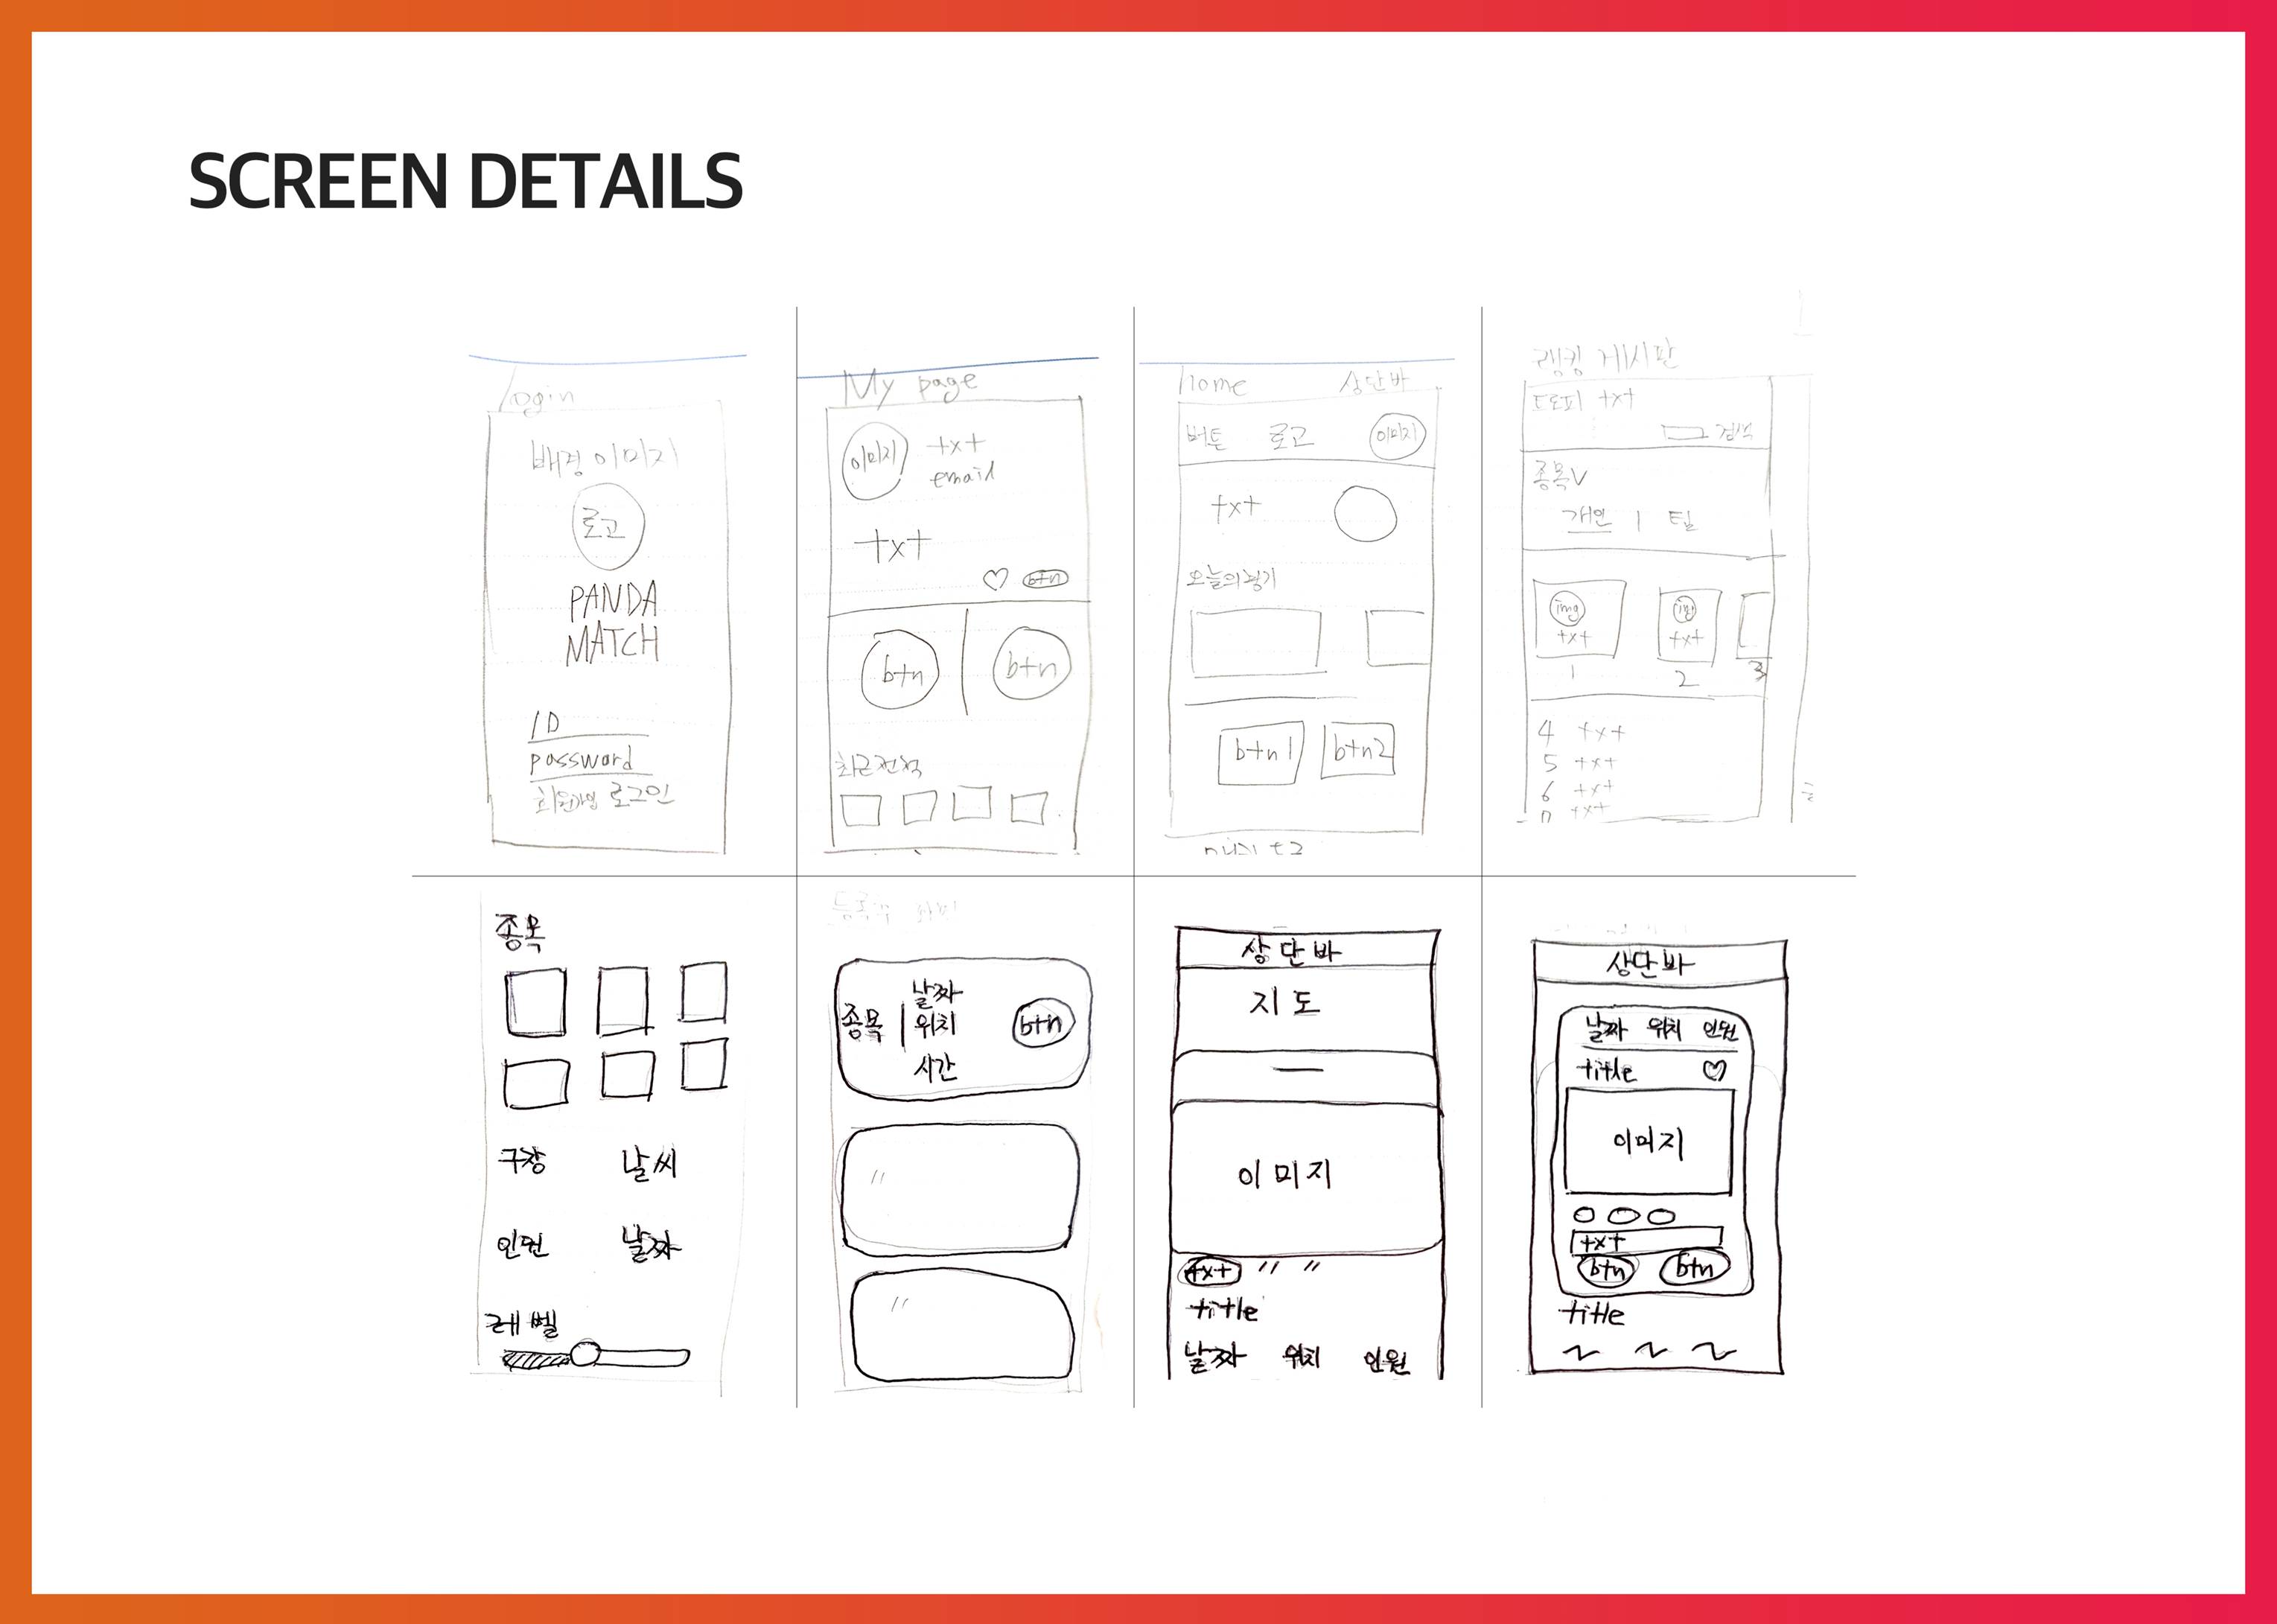 SCREEN DETAILS
Login
배경이미지
로고
PANDA
MATCH
ID
password
회원가입 로그인
My page
이미지 txt
email
txt
btn
btn btn
최근전적
home 상단바
버튼 로고 이미지
txt
오늘의경기
btn1 btn2
랭킹 게시판
트로피 txt
검색
종목V
개인 | 팀
img img
txt txt
1 2 3
4 txt
5 txt
6 txt
txt
종목
구장 날씨
인원 날짜
레벨
날짜
종목 위치 btn
시간
〃
〃
상단바
지도
이미지
txt 〃 〃
title
날짜 위치 인원
상단바
날짜 위치 인원
title
이미지
txt
btn btn
title